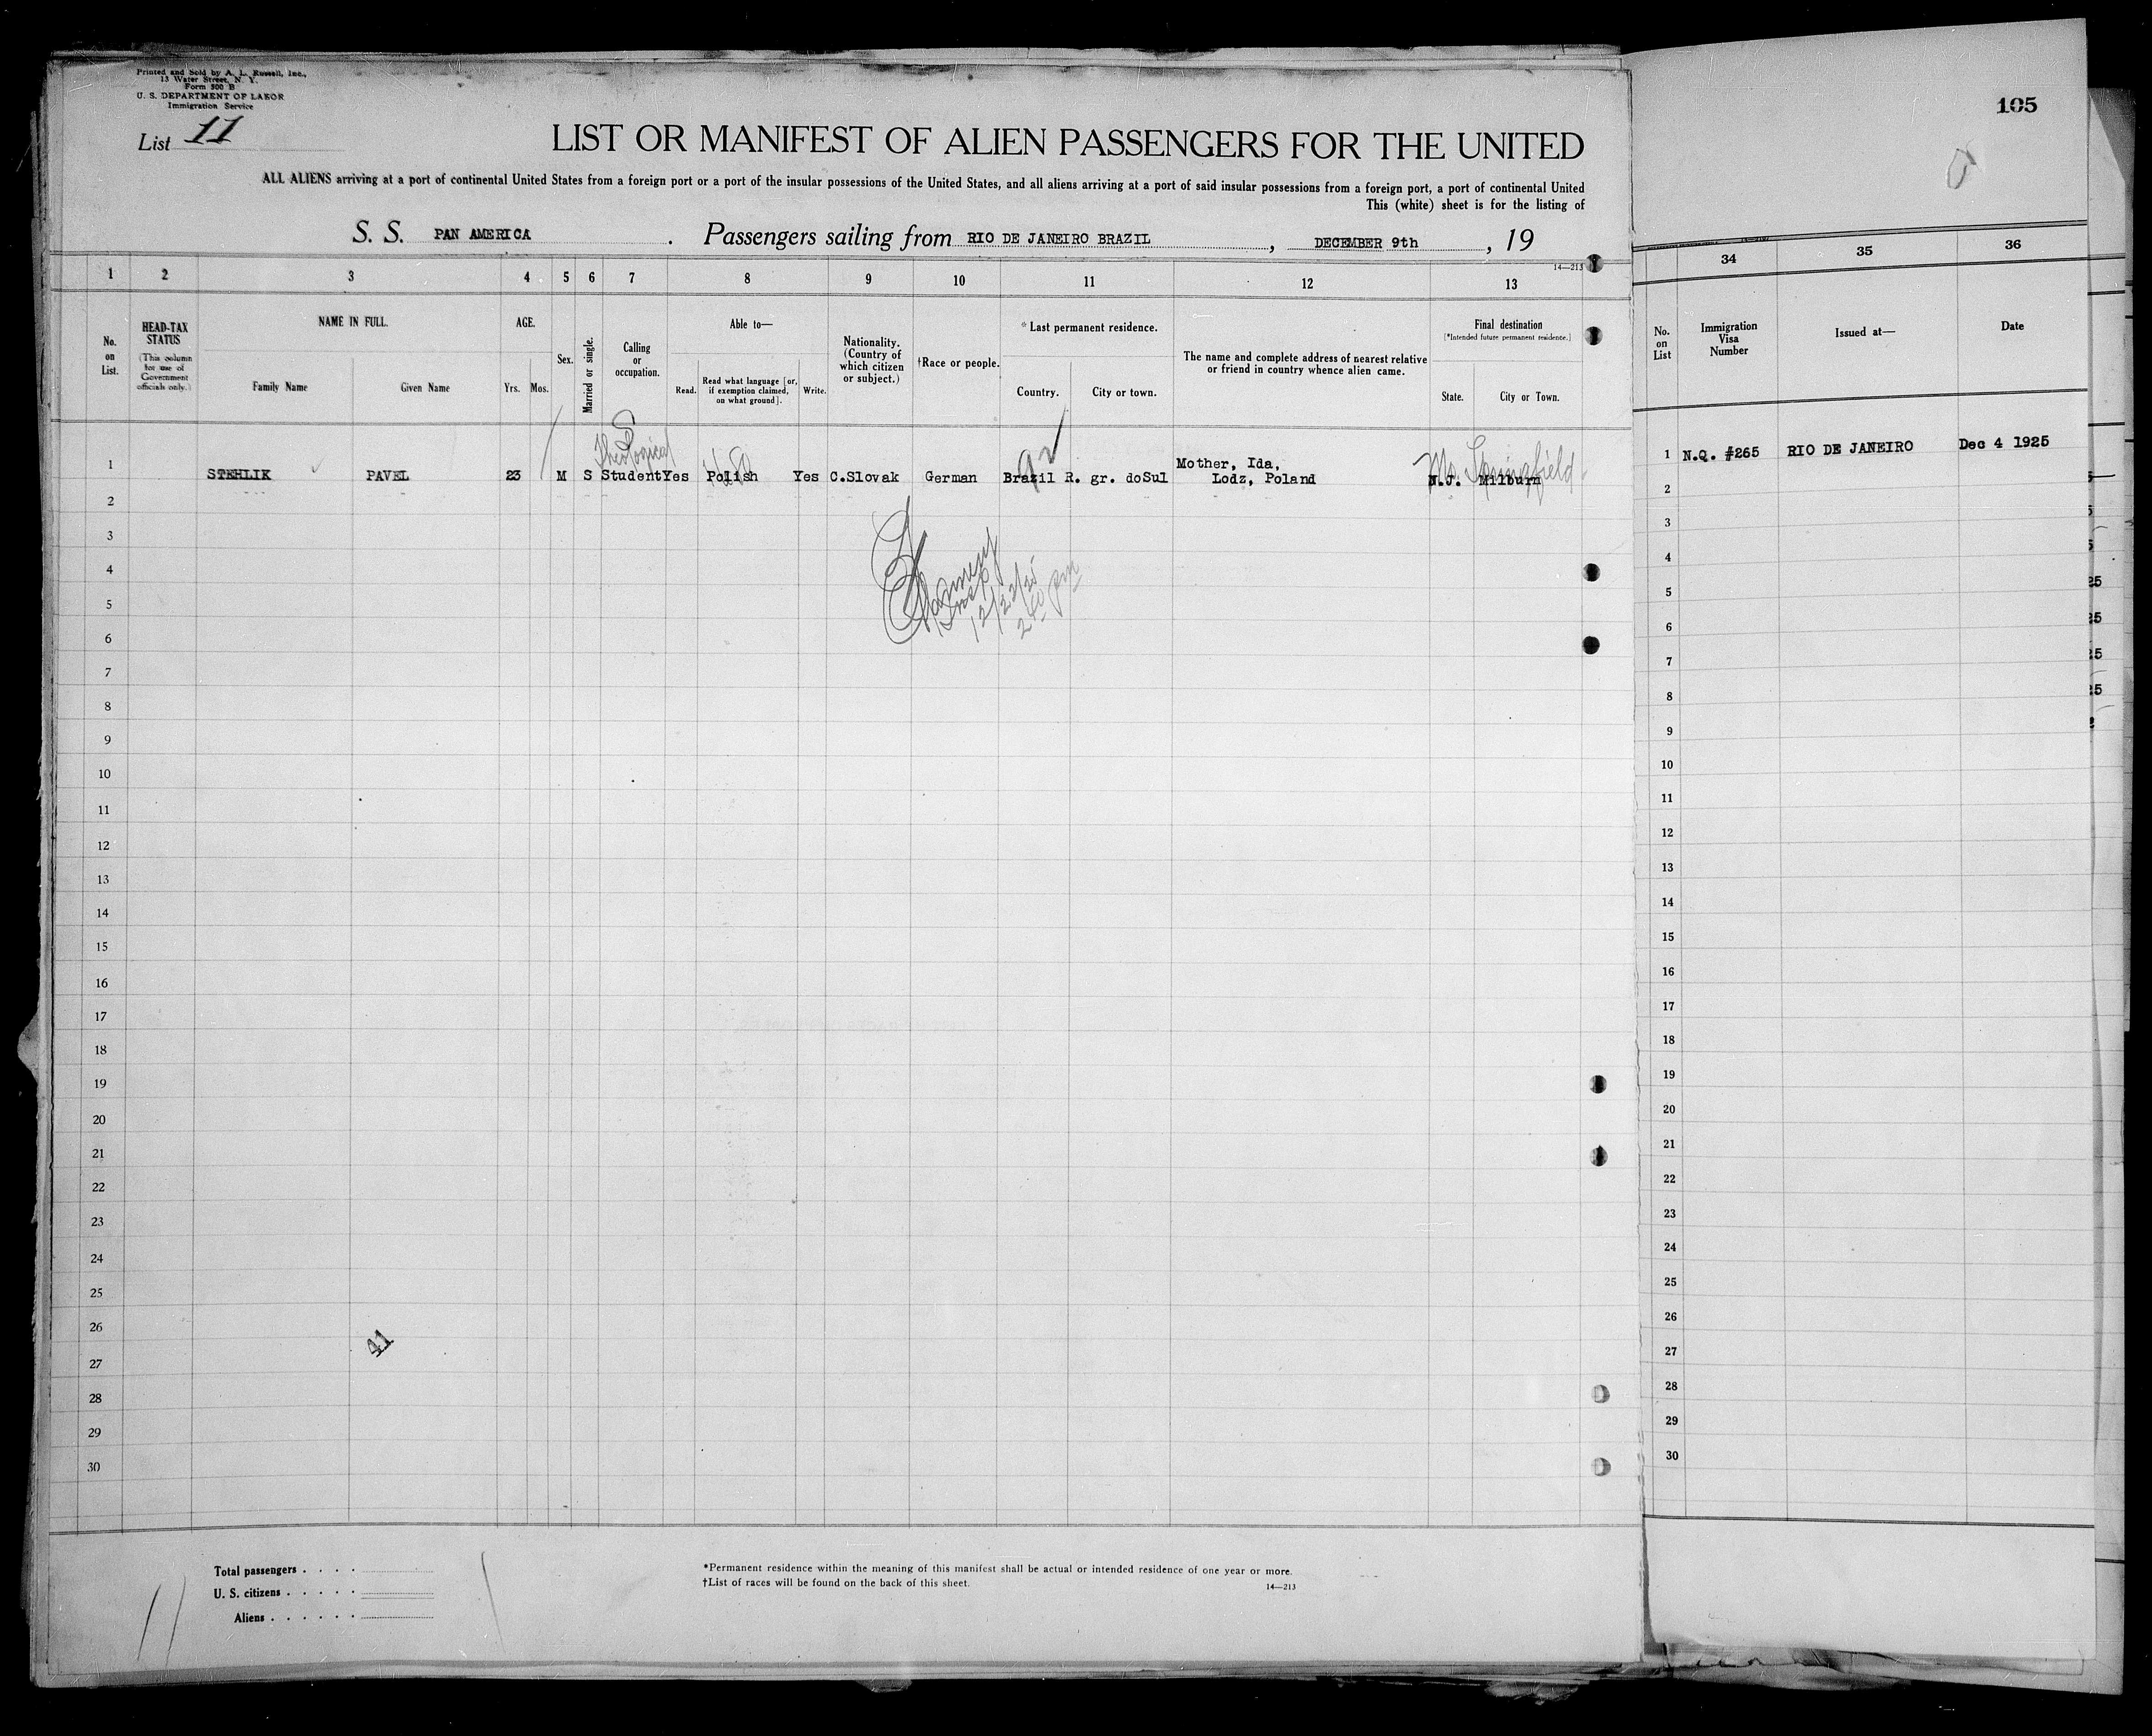 Printed and Sold by A. L. Russell, Inc.,
13 Water Street, N. Y.
Form 500 B
U. S. DEPARTMENT OF LABOR
Immigration Service
List 11
LIST OR MANIFEST OF ALIEN PASSENGERS FOR THE UNITED
ALL ALIENS arriving at a port of continental United States from a foreign port or a port of the insular possessions of the United States, and all aliens arriving at a port of said insular possessions from a foreign port, a port of continental United
This (white) sheet is for the listing of
S. S. PAN AMERICA . Passengers sailing from RIO DE JANEIRO BRAZIL , DECEMBER 9th , 19
14—213
1 2 3 4 5 6 7 8 9 10 11 12 13
No. on List.
HEAD-TAX STATUS
(This column for use of Government officials only.)
NAME IN FULL.
Family Name
Given Name
AGE.
Yrs. Mos.
Sex.
Married or single.
Calling or occupation.
Able to—
Read.
Read what language [or, if exemption claimed, on what ground].
Write.
Nationality. (Country of which citizen or subject.)
†Race or people.
* Last permanent residence.
Country.
City or town.
The name and complete address of nearest relative or friend in country whence alien came.
Final destination
[*Intended future permanent residence.]
State.
City or Town.
Theological
Mo. Springfield
1 STEHLIK PAVEL 23 M S Student Yes Polish Yes C.Slovak German Brazil R. gr. doSul Mother, Ida,
Lodz, Poland
N.J. Milburn
2
3
4
5
6
12/22/25
2 40 pm
7
8
9
10
11
12
13
14
15
16
17
18
19
20
21
22
23
24
25
26
41
27
28
29
30
Total passengers . . . .
U. S. citizens . . . . .
Aliens . . . . . .
*Permanent residence within the meaning of this manifest shall be actual or intended residence of one year or more.
†List of races will be found on the back of this sheet.
14—213
105
34 35 36
No. on List
Immigration Visa Number
Issued at—
Date
1 N.Q. #265 RIO DE JANEIRO Dec 4 1925
2
3
4
5
6
7
8
9
10
11
12
13
14
15
16
17
18
19
20
21
22
23
24
25
26
27
28
29
30